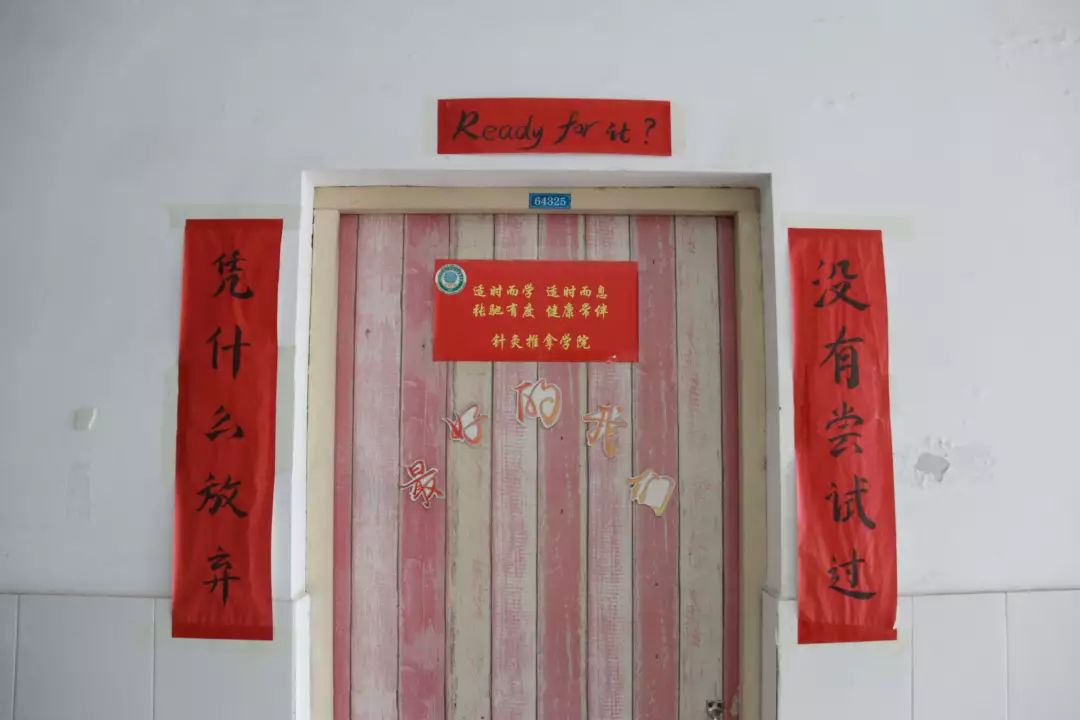 Ready for it?
64325
没有尝试过
凭什么放弃
适时而学 适时而息
张驰有度 健康常伴
针灸推拿学院
最好的我们